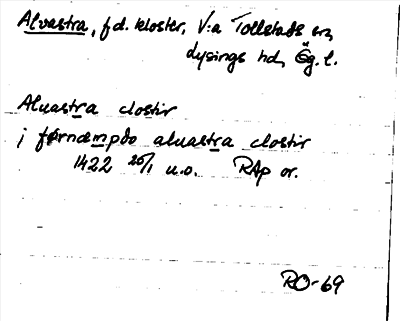 Alvastra, f.d. kloster, V:a Tollstads sn,
dysings hd, Ög. l.
Aluastra clostir
i førnæmpdo aluastra clostir
1422 25/1 u.o. RAp or.
RO-69